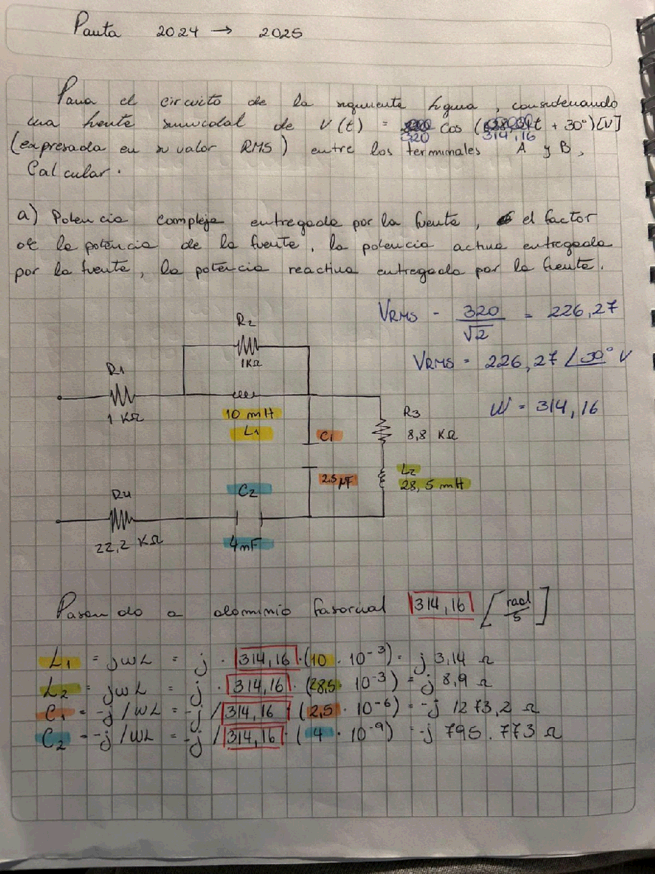 Pauta 2024 → 2025
Para el circuito de la siguiente figura, considerando
una fuente sinusoidal de V(t) = 320 Cos (314,16 t + 30°)[V]
(expresada en su valor RMS) entre los terminales A y B,
Calcular.
a) Potencia compleja entregada por la fuente, el factor
de la potencia de la fuente, la potencia activa entregada
por la fuente, la potencia reactiva entregada por la fuente.
VRMS = 320/√2 = 226,27
VRMS = 226,27 ∠30° V
W = 314,16
R2
1KΩ
R1
1 KΩ
10 mH
L1
C1
2.5 µF
R3
8,8 KΩ
L2
28,5 mH
C2
4nF
R4
22,2 KΩ
Pasando a dominio fasorial 314,16 [rad/s]
L1 = jωL = j · 314,16 · (10 · 10⁻³) = j 3,14 Ω
L2 = jωL = j · 314,16 · (28,5 · 10⁻³) = j 8,9 Ω
C1 = -j/ωL = -j / 314,16 · (2,5 · 10⁻⁶) = -j 1273,2 Ω
C2 = -j/ωL = -j / 314,16 · (4 · 10⁻⁹) = -j 795.773 Ω